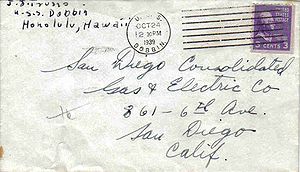 U.S.S. Dobbin
Honolulu, Hawaii
U. S. S.
OCT 24
12 30 PM
1939
DOBBIN
3 CENTS 3
San Diego Consolidated
Gas & Electric Co
861-6th Ave.
San Diego
Calif.